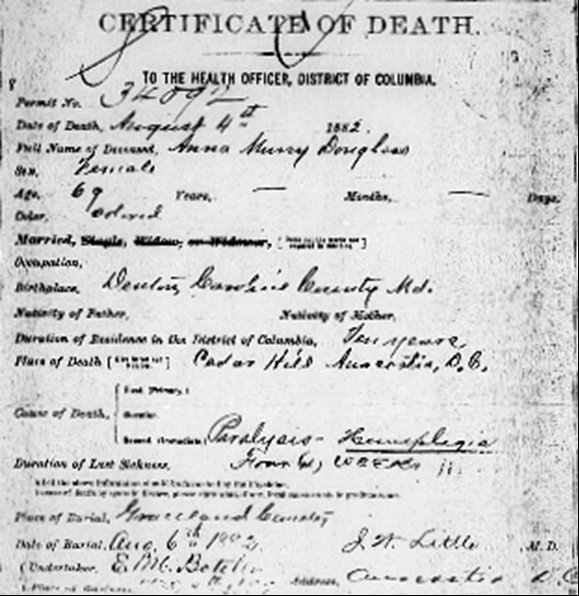 CERTIFICATE OF DEATH.
TO THE HEALTH OFFICER, DISTRICT OF COLUMBIA.
Permit No. 34092
Date of Death, August 4th 1882.
Full Name of Deceased, Anna Murry Douglass
Sex, Female
Age, 69 Years, — Months, — Days.
Color, Colored
Married, Single, Widow, or Widower,
Occupation,
Birthplace, Denton, Caroline County Md.
Nativity of Father, Nativity of Mother,
Duration of Residence in the District of Columbia, Ten years,
Place of Death Cedar Hill Anacostia, D.C.
First (Primary,)
Cause of Death,
Second (Immediate,) Paralysis - Hemiplegia
Duration of Last Sickness, Four 4, weeks
Place of Burial, Graceland
Date of Burial, Aug. 6th
J. W. Little M. D.
Undertaker, E. M.
Address, Anacostia D.C.